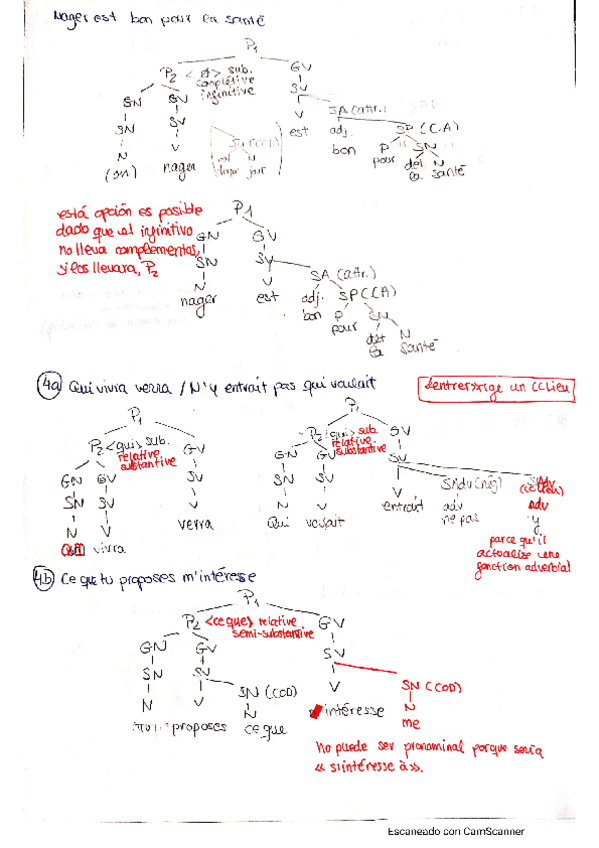 Nager est bon pour la santé
P1
P2 <Ø> sub. GV
complétive
infinitive
SN GV SV
SN SV V SA (attr.)
N V est adj. SP (C.A)
(on) nager bon P SN
pour det N
la santé
está opción es posible P1
dado que el infinitivo GN GV
no lleva complementos, SN SV
si los llevara, P2 N V SA (attr.)
nager est adj. SP (CA)
bon P SN
pour det N
la santé
4a Qui vivra verra / N'y entrait pas qui voulait
P1 P1
P2 <qui> sub. GV P2 <qui> sub. GV
relative relative
substantive substantive
GN GV SV GN GV SV
SN SV V SN SV V SAdv (nég) SAdv
N V verra N V entrait adv (cc lieu)
vivra Qui voulait ne pas adv
y
parce qu'il
actualise une
fonction adverbial
4b Ce que tu proposes m'intéresse
P1
P2 <ce que> relative GV
semi-substantive
GN GV SV
SN SV SN (COD) V SN (COD)
N V N intéresse N
proposes ce que me
No puede ser pronominal porque sería
Escaneado con CamScanner